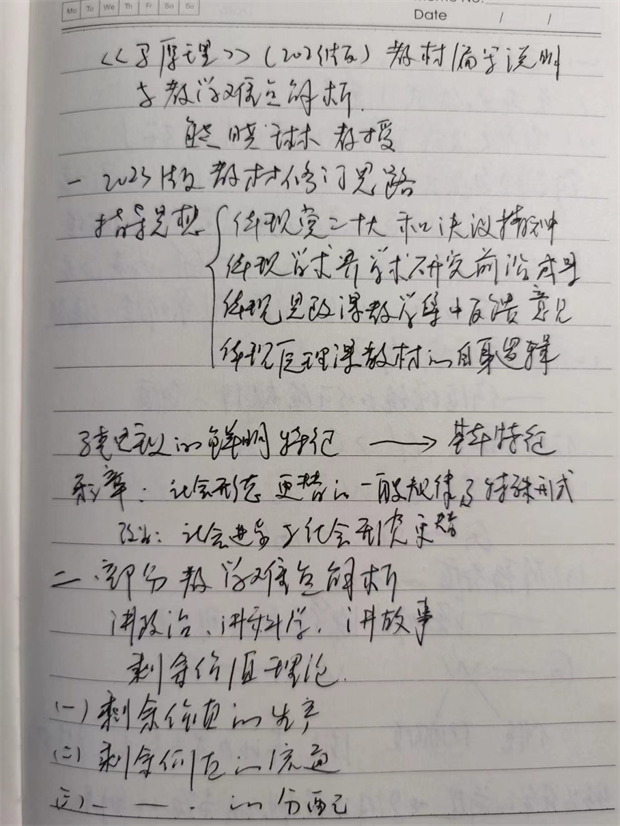 Mo Tu We Th Fr Sa Su
Memo No.
Date / /
《《原理》》(2023版)教材编写说明
与教学难点解析.
熊晓琳 教授
一 2023版教材修订思路
指导思想
体现党二十大和决议精神
体现学术界学术研究前沿成果
体现思政课教学集中反馈意见
体现原理课教材的自身逻辑
马克思主义的鲜明特征 → 基本特征
章:社会形态更替的一般规律及特殊形式
改为:社会进步与社会形态更替
二.部分教学难点解析
讲政治、讲科学、讲故事
剩余价值理论.
(一)剩余价值的生产
(二)剩余价值的流通
(三)— — 的分配